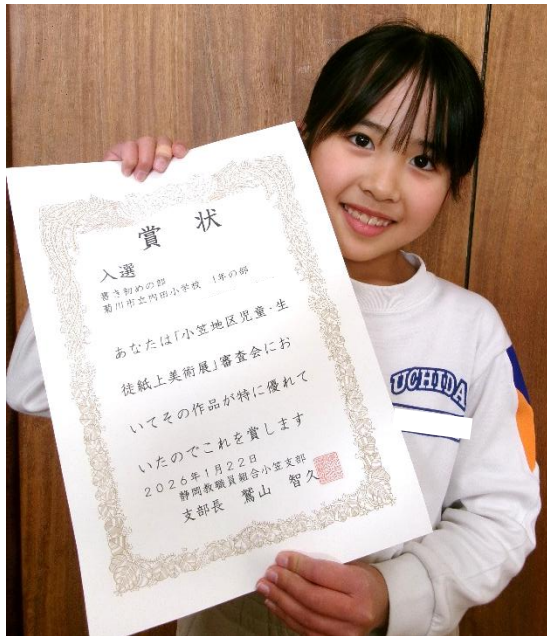 賞状
入選
書き初めの部
菊川市立内田小学校 1年の部
あなたは「小笠地区児童・生
徒紙上美術展」審査会にお
いてその作品が特に優れて
いたのでこれを賞します
2026年1月22日
静岡教職員組合小笠支部
支部長 鷲山 智久
UCHIDA